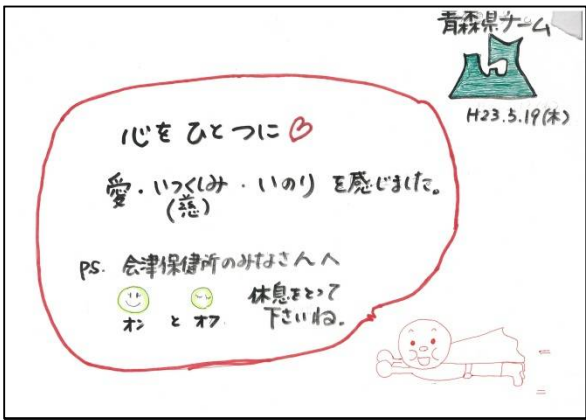 青森県チーム
H23.5.19(木)
心をひとつに
愛・いつくしみ・いのりを感じました。
(慈)
PS. 会津保健所のみなさんへ
休息をとって
オンとオフ 下さいね。